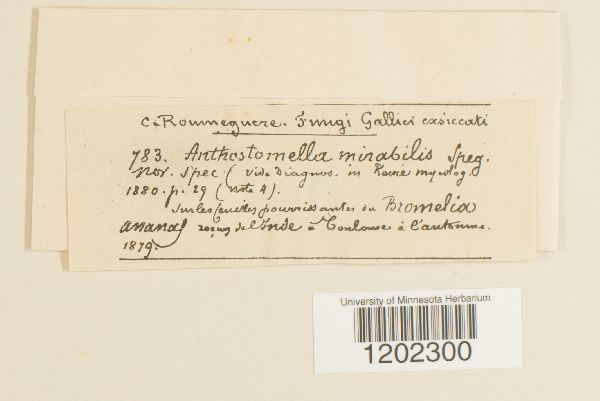 C. Roumeguere. Fungi Gallici exsiccati
783. Anthostomella mirabilis Speg.
nov. spec (vide diagnos. in Revue mycolog.
1880. p. 29 (note 4).
Sur les feuilles pourrissantes du Bromelia
ananas reçus de l'Inde à Toulouse à l'automne.
1879.
University of Minnesota Herbarium
1202300